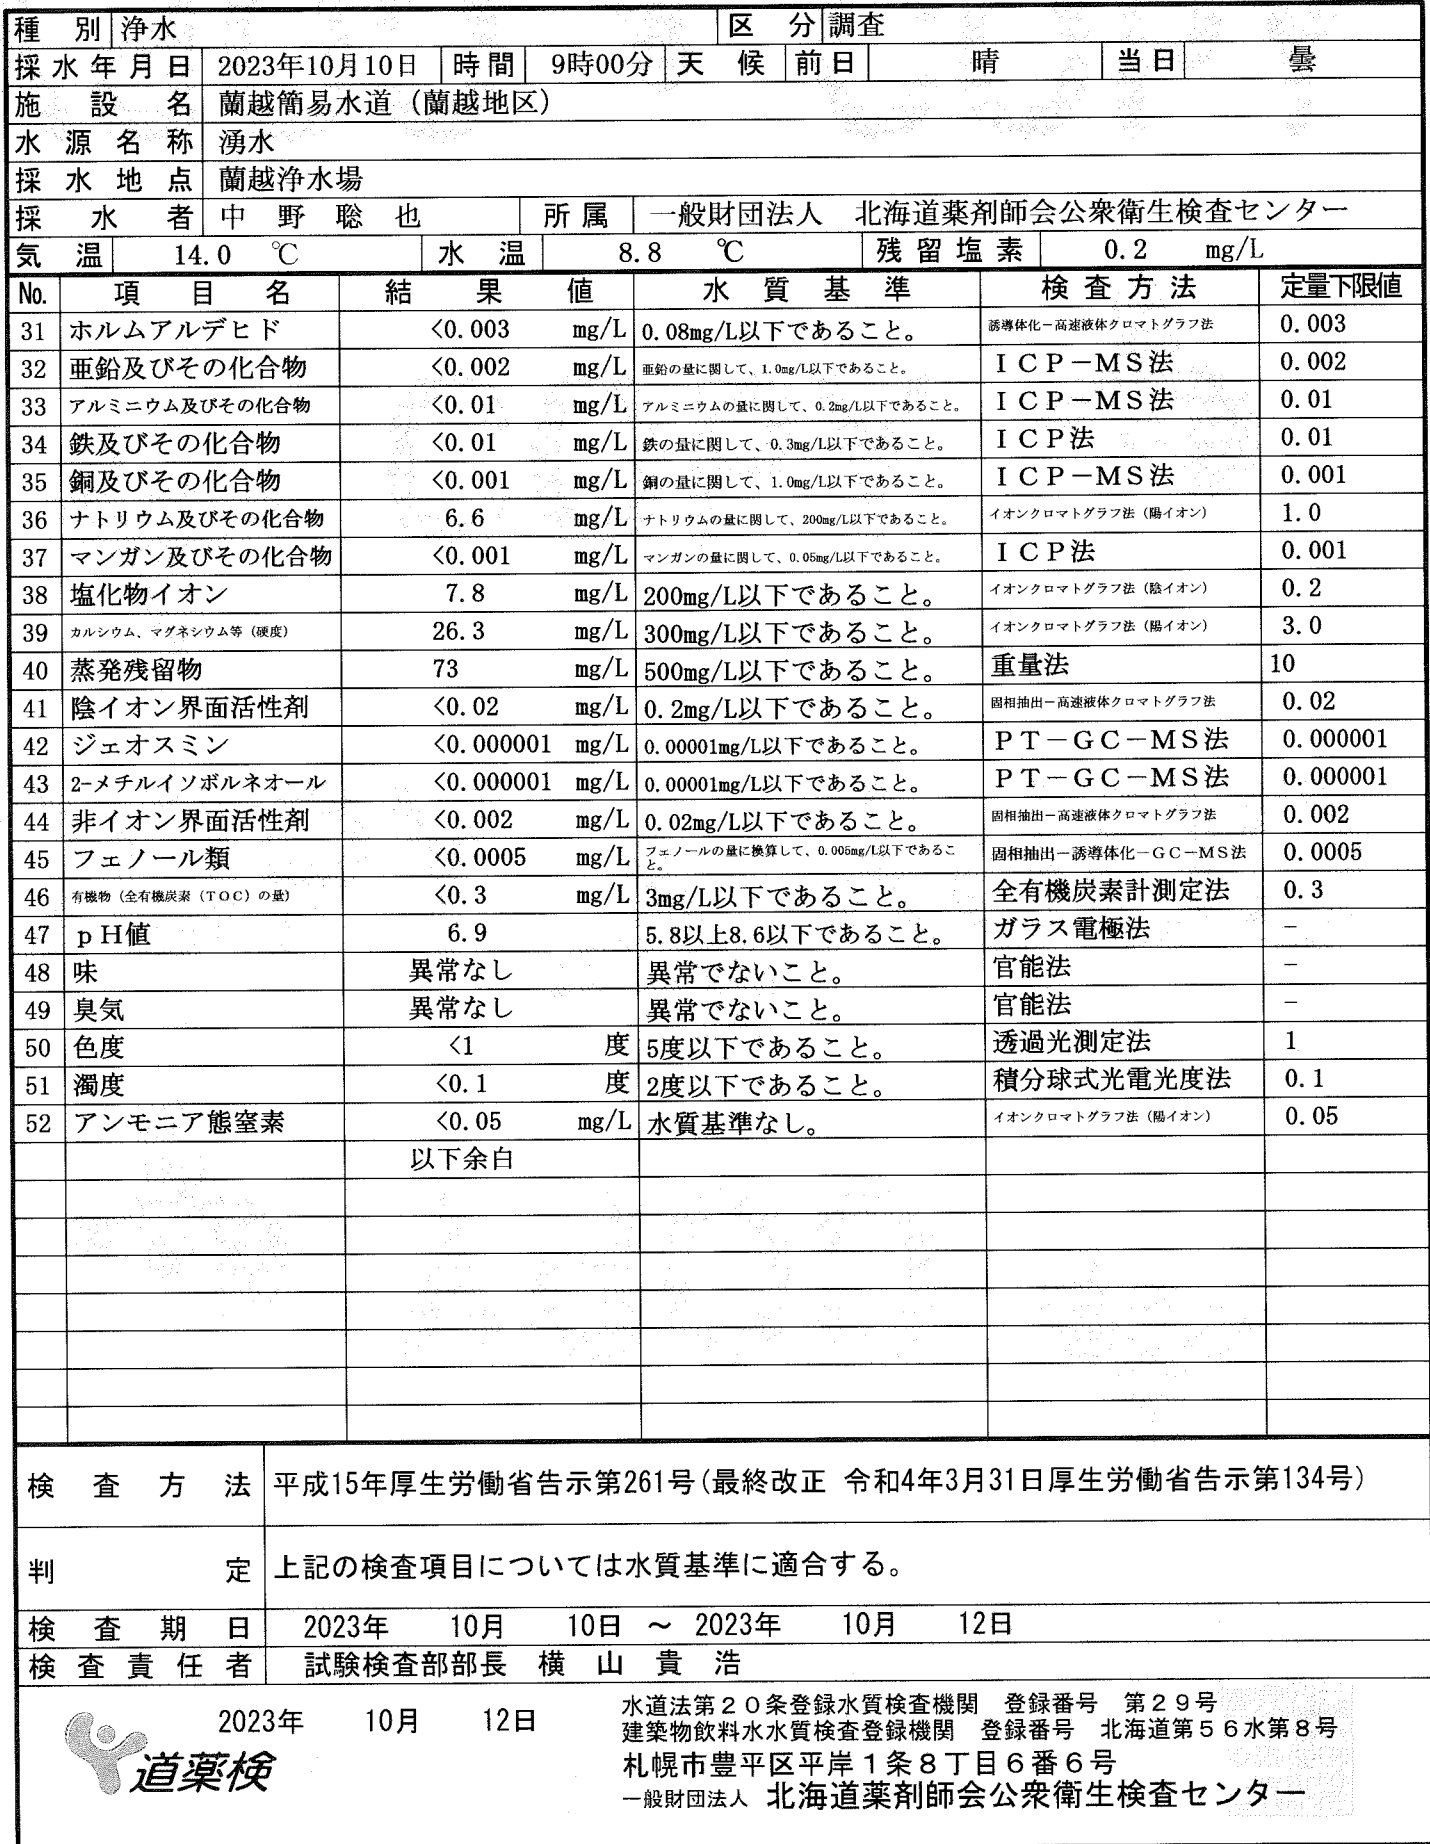 種別 浄水 区分 調査
採水年月日 2023年10月10日 時間 9時00分 天候 前日 晴 当日 曇
施設名 蘭越簡易水道（蘭越地区）
水源名称 湧水
採水地点 蘭越浄水場
採水者 中野聡也 所属 一般財団法人 北海道薬剤師会公衆衛生検査センター
気温 14.0 ℃ 水温 8.8 ℃ 残留塩素 0.2 mg/L
No. 項目名 結果値 水質基準 検査方法 定量下限値
31 ホルムアルデヒド <0.003 mg/L 0.08mg/L以下であること。 誘導体化－高速液体クロマトグラフ法 0.003
32 亜鉛及びその化合物 <0.002 mg/L 亜鉛の量に関して、1.0mg/L以下であること。 ＩＣＰ－ＭＳ法 0.002
33 アルミニウム及びその化合物 <0.01 mg/L アルミニウムの量に関して、0.2mg/L以下であること。 ＩＣＰ－ＭＳ法 0.01
34 鉄及びその化合物 <0.01 mg/L 鉄の量に関して、0.3mg/L以下であること。 ＩＣＰ法 0.01
35 銅及びその化合物 <0.001 mg/L 銅の量に関して、1.0mg/L以下であること。 ＩＣＰ－ＭＳ法 0.001
36 ナトリウム及びその化合物 6.6 mg/L ナトリウムの量に関して、200mg/L以下であること。 イオンクロマトグラフ法（陽イオン） 1.0
37 マンガン及びその化合物 <0.001 mg/L マンガンの量に関して、0.05mg/L以下であること。 ＩＣＰ法 0.001
38 塩化物イオン 7.8 mg/L 200mg/L以下であること。 イオンクロマトグラフ法（陰イオン） 0.2
39 カルシウム、マグネシウム等（硬度） 26.3 mg/L 300mg/L以下であること。 イオンクロマトグラフ法（陽イオン） 3.0
40 蒸発残留物 73 mg/L 500mg/L以下であること。 重量法 10
41 陰イオン界面活性剤 <0.02 mg/L 0.2mg/L以下であること。 固相抽出－高速液体クロマトグラフ法 0.02
42 ジェオスミン <0.000001 mg/L 0.00001mg/L以下であること。 ＰＴ－ＧＣ－ＭＳ法 0.000001
43 2-メチルイソボルネオール <0.000001 mg/L 0.00001mg/L以下であること。 ＰＴ－ＧＣ－ＭＳ法 0.000001
44 非イオン界面活性剤 <0.002 mg/L 0.02mg/L以下であること。 固相抽出－高速液体クロマトグラフ法 0.002
45 フェノール類 <0.0005 mg/L フェノールの量に換算して、0.005mg/L以下であること。 固相抽出－誘導体化－ＧＣ－ＭＳ法 0.0005
46 有機物（全有機炭素（ＴＯＣ）の量） <0.3 mg/L 3mg/L以下であること。 全有機炭素計測定法 0.3
47 ｐＨ値 6.9 5.8以上8.6以下であること。 ガラス電極法 －
48 味 異常なし 異常でないこと。 官能法 －
49 臭気 異常なし 異常でないこと。 官能法 －
50 色度 <1 度 5度以下であること。 透過光測定法 1
51 濁度 <0.1 度 2度以下であること。 積分球式光電光度法 0.1
52 アンモニア態窒素 <0.05 mg/L 水質基準なし。 イオンクロマトグラフ法（陽イオン） 0.05
以下余白
検査方法 平成15年厚生労働省告示第261号(最終改正 令和4年3月31日厚生労働省告示第134号)
判定 上記の検査項目については水質基準に適合する。
検査期日 2023年 10月 10日 ～ 2023年 10月 12日
検査責任者 試験検査部部長 横山貴浩
2023年 10月 12日
道薬検
水道法第２０条登録水質検査機関 登録番号 第２９号
建築物飲料水水質検査登録機関 登録番号 北海道第５６水第８号
札幌市豊平区平岸１条８丁目６番６号
一般財団法人 北海道薬剤師会公衆衛生検査センター